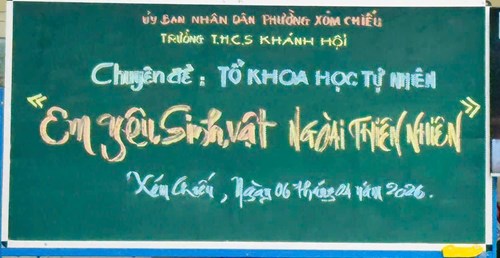 ỦY BAN NHÂN DÂN PHƯỜNG XÓM CHIẾU
TRƯỜNG T.H.C.S KHÁNH HỘI
Chuyên đề : TỔ KHOA HỌC TỰ NHIÊN
"Em yêu Sinh vật NGOÀI THIÊN NHIÊN"
Xóm Chiếu, Ngày 06 tháng 01 năm 2026.